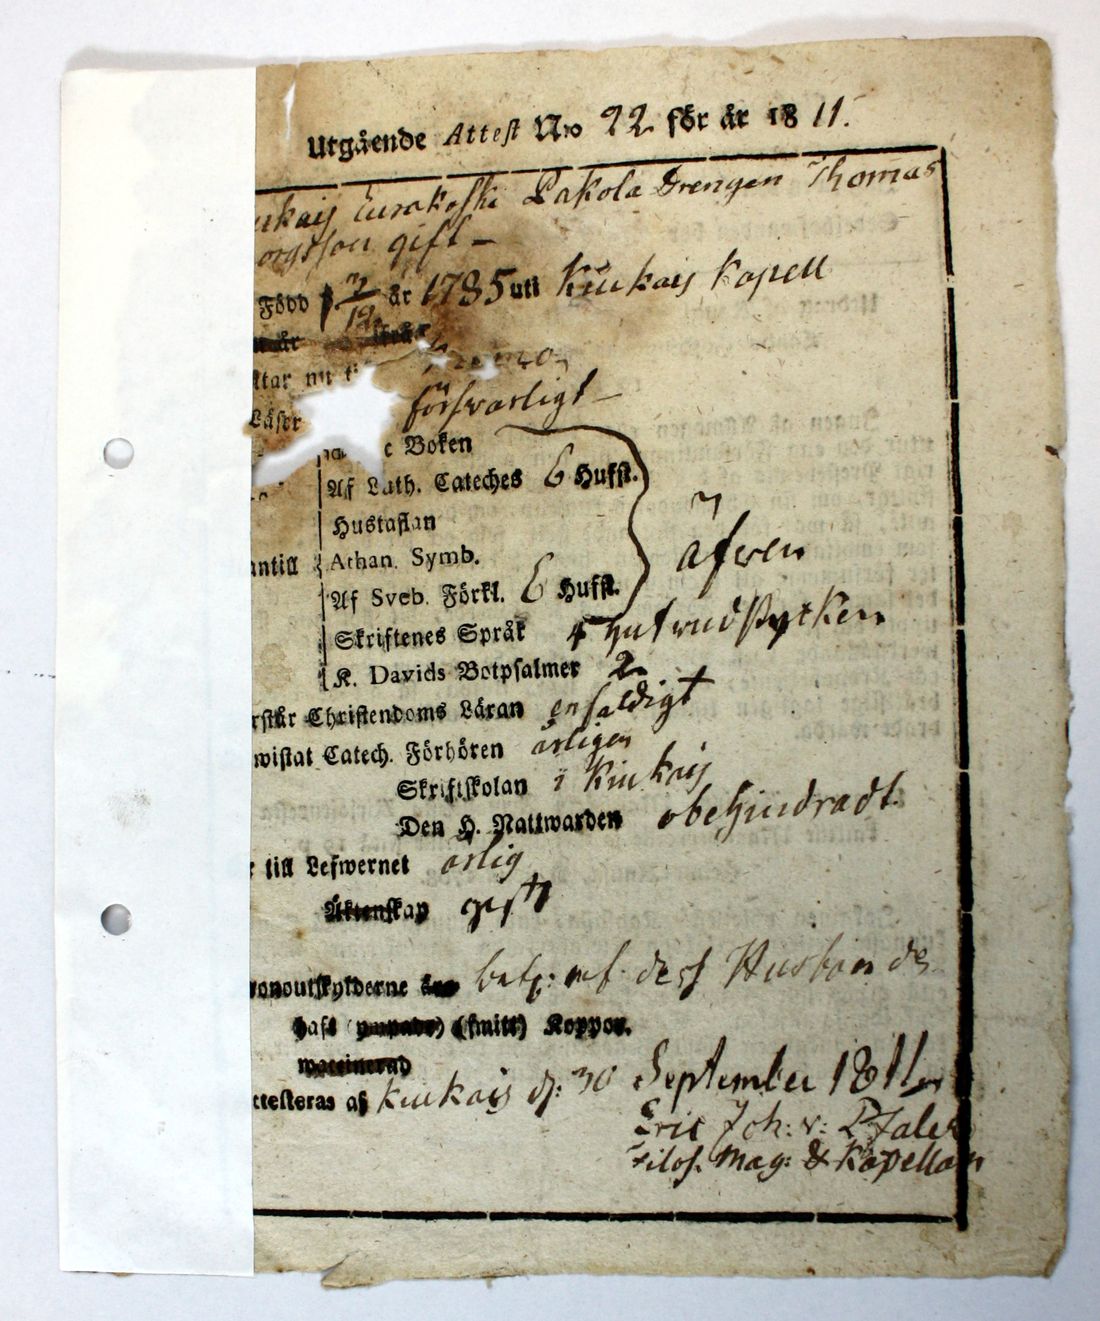 Utgående Attest N:o 22 för år 1811.
Eurakoski Pakola Drengen Thomas
gift –
Född år 1785 uti Kiukais Kapell
försvarligt –
Boken
Af Luth. Cateches 6 Hufst.
Hustaflan
Athan. Symb.
äfwen
Af Sveb. Förkl. 6 Hufst.
Skriftenes Språk
K. Davids Botpsalmer 2
Christendoms Läran enfaldigt
wistat Catech. Förhören årligen
Skriftskolan i Kiukais
Den H. Nattwarden obehindradt.
till Lefwernet ärlig
Äktenskap gift
af dess Husbonde
haft (smitt) Koppor.
Kiukais d: 30 September 1811
Eric Joh: v: Pfaler
Filos. Mag: & Kapellan